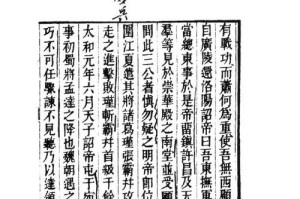 有戰功而蕭何為重使吾無西顧
自廣陵還洛陽詔帝曰吾東撫軍
當總東事於是帝留鎮許昌及天
羣等見於崇華殿之南堂並受顧
間此三公者慎勿疑之明帝即位
圍江夏遣其將諸葛瑾張霸并攻
走之進擊敗瑾斬霸并首級千餘
太和元年六月天子詔帝屯于宛
事初蜀將孟達之降也魏朝遇之
巧不可任驟諫不見聽乃以達領